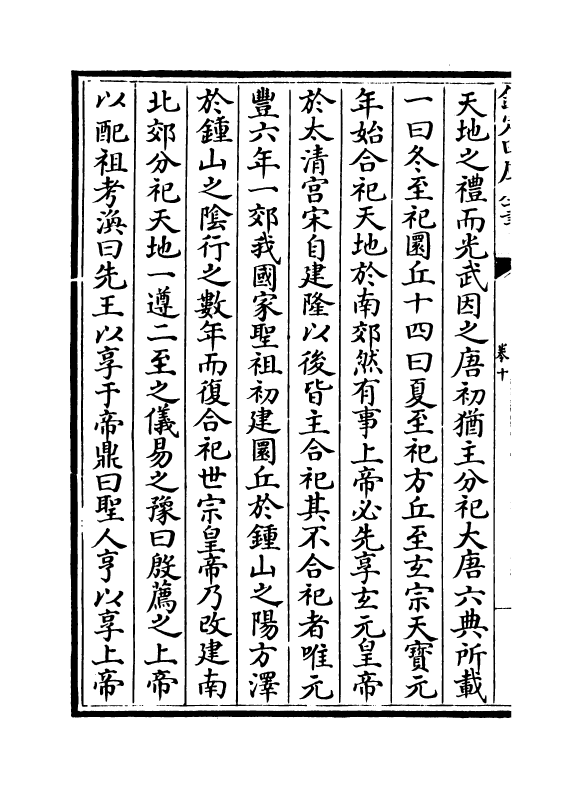 欽定四庫全書
卷十
天地之禮而光武因之唐初猶主分祀大唐六典所載
一曰冬至祀圜丘十四曰夏至祀方丘至玄宗天寶元
年始合祀天地於南郊然有事上帝必先享玄元皇帝
於太清宫宋自建隆以後皆主合祀其不合祀者唯元
豐六年一郊我國家聖祖初建圜丘於鍾山之陽方澤
於鍾山之陰行之數年而復合祀世宗皇帝乃改建南
北郊分祀天地一遵二至之儀易之豫曰殷薦之上帝
以配祖考渙曰先王以享于帝鼎曰聖人亨以享上帝